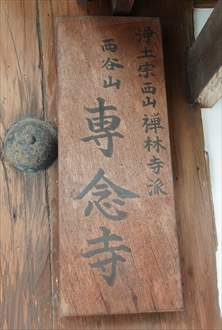 浄土宗西山禅林寺派
西谷山
専念寺